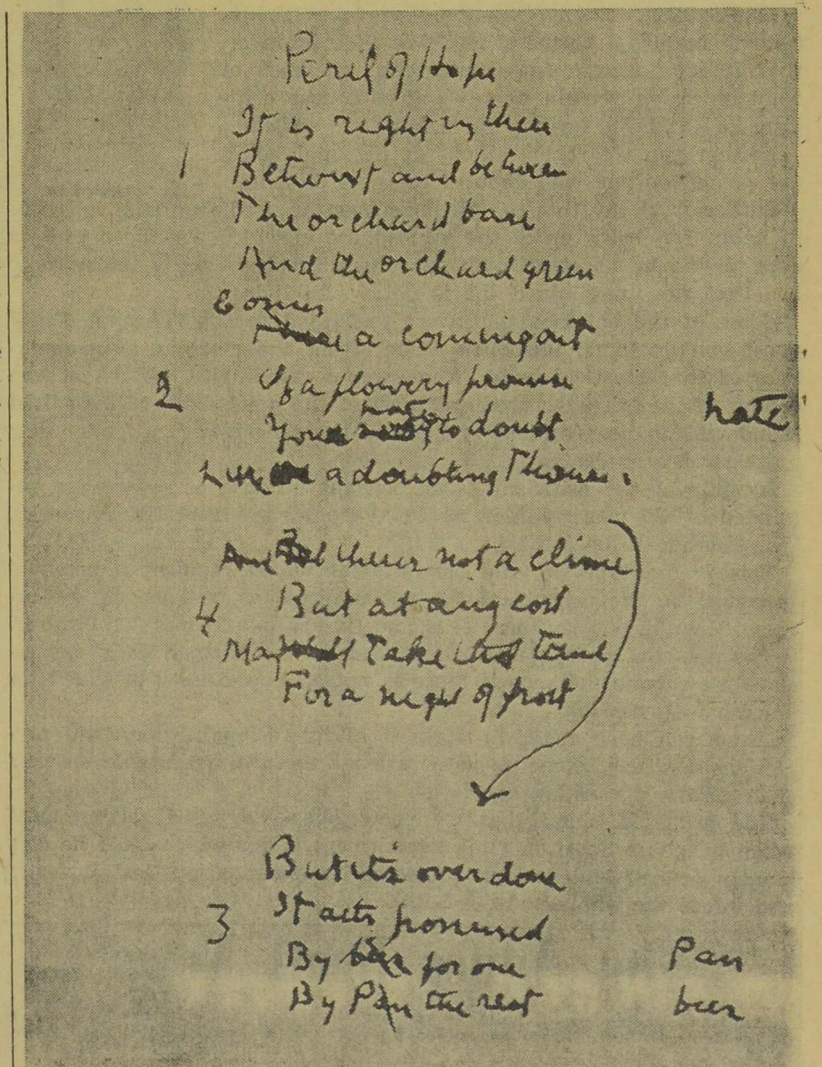 Peril of Hope
It is right in there
1 Betwixt and between
The orchard bare
And the orchard green
Comes
a coming out
2 Of a flowery promise
You hate to doubt hate
Like a doubting Thomas.
there's not a clime
4 But at any cost
May Take that time
For a night of frost
But it's overdone
3 It acts possessed
By bees for one Pan
By Pan the rest bees